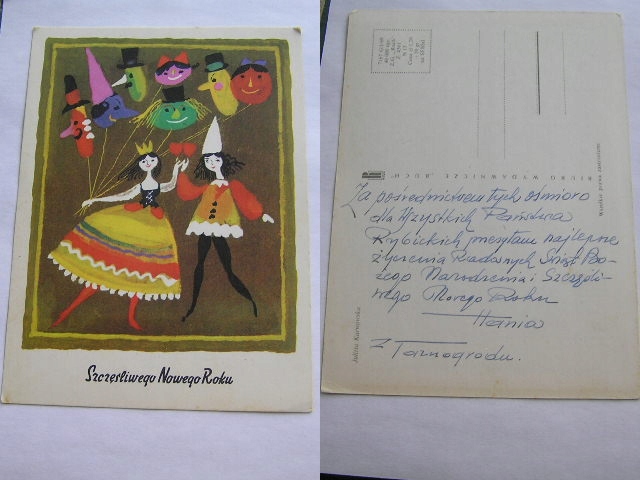 Szczęśliwego Nowego Roku
BIURO WYDAWNICZE „RUCH”
Wszelkie prawa zastrzeżone
Za pośrednictwem tych ośmioro
dla Wszystkich Państwa
Rybickich przesyłam najlepsze
życzenia Radosnych Świąt Bo-
żego Narodzenia i Szczęśli-
wego Nowego Roku
Hania
z Tarnogrodu.
Julitta Karwowska